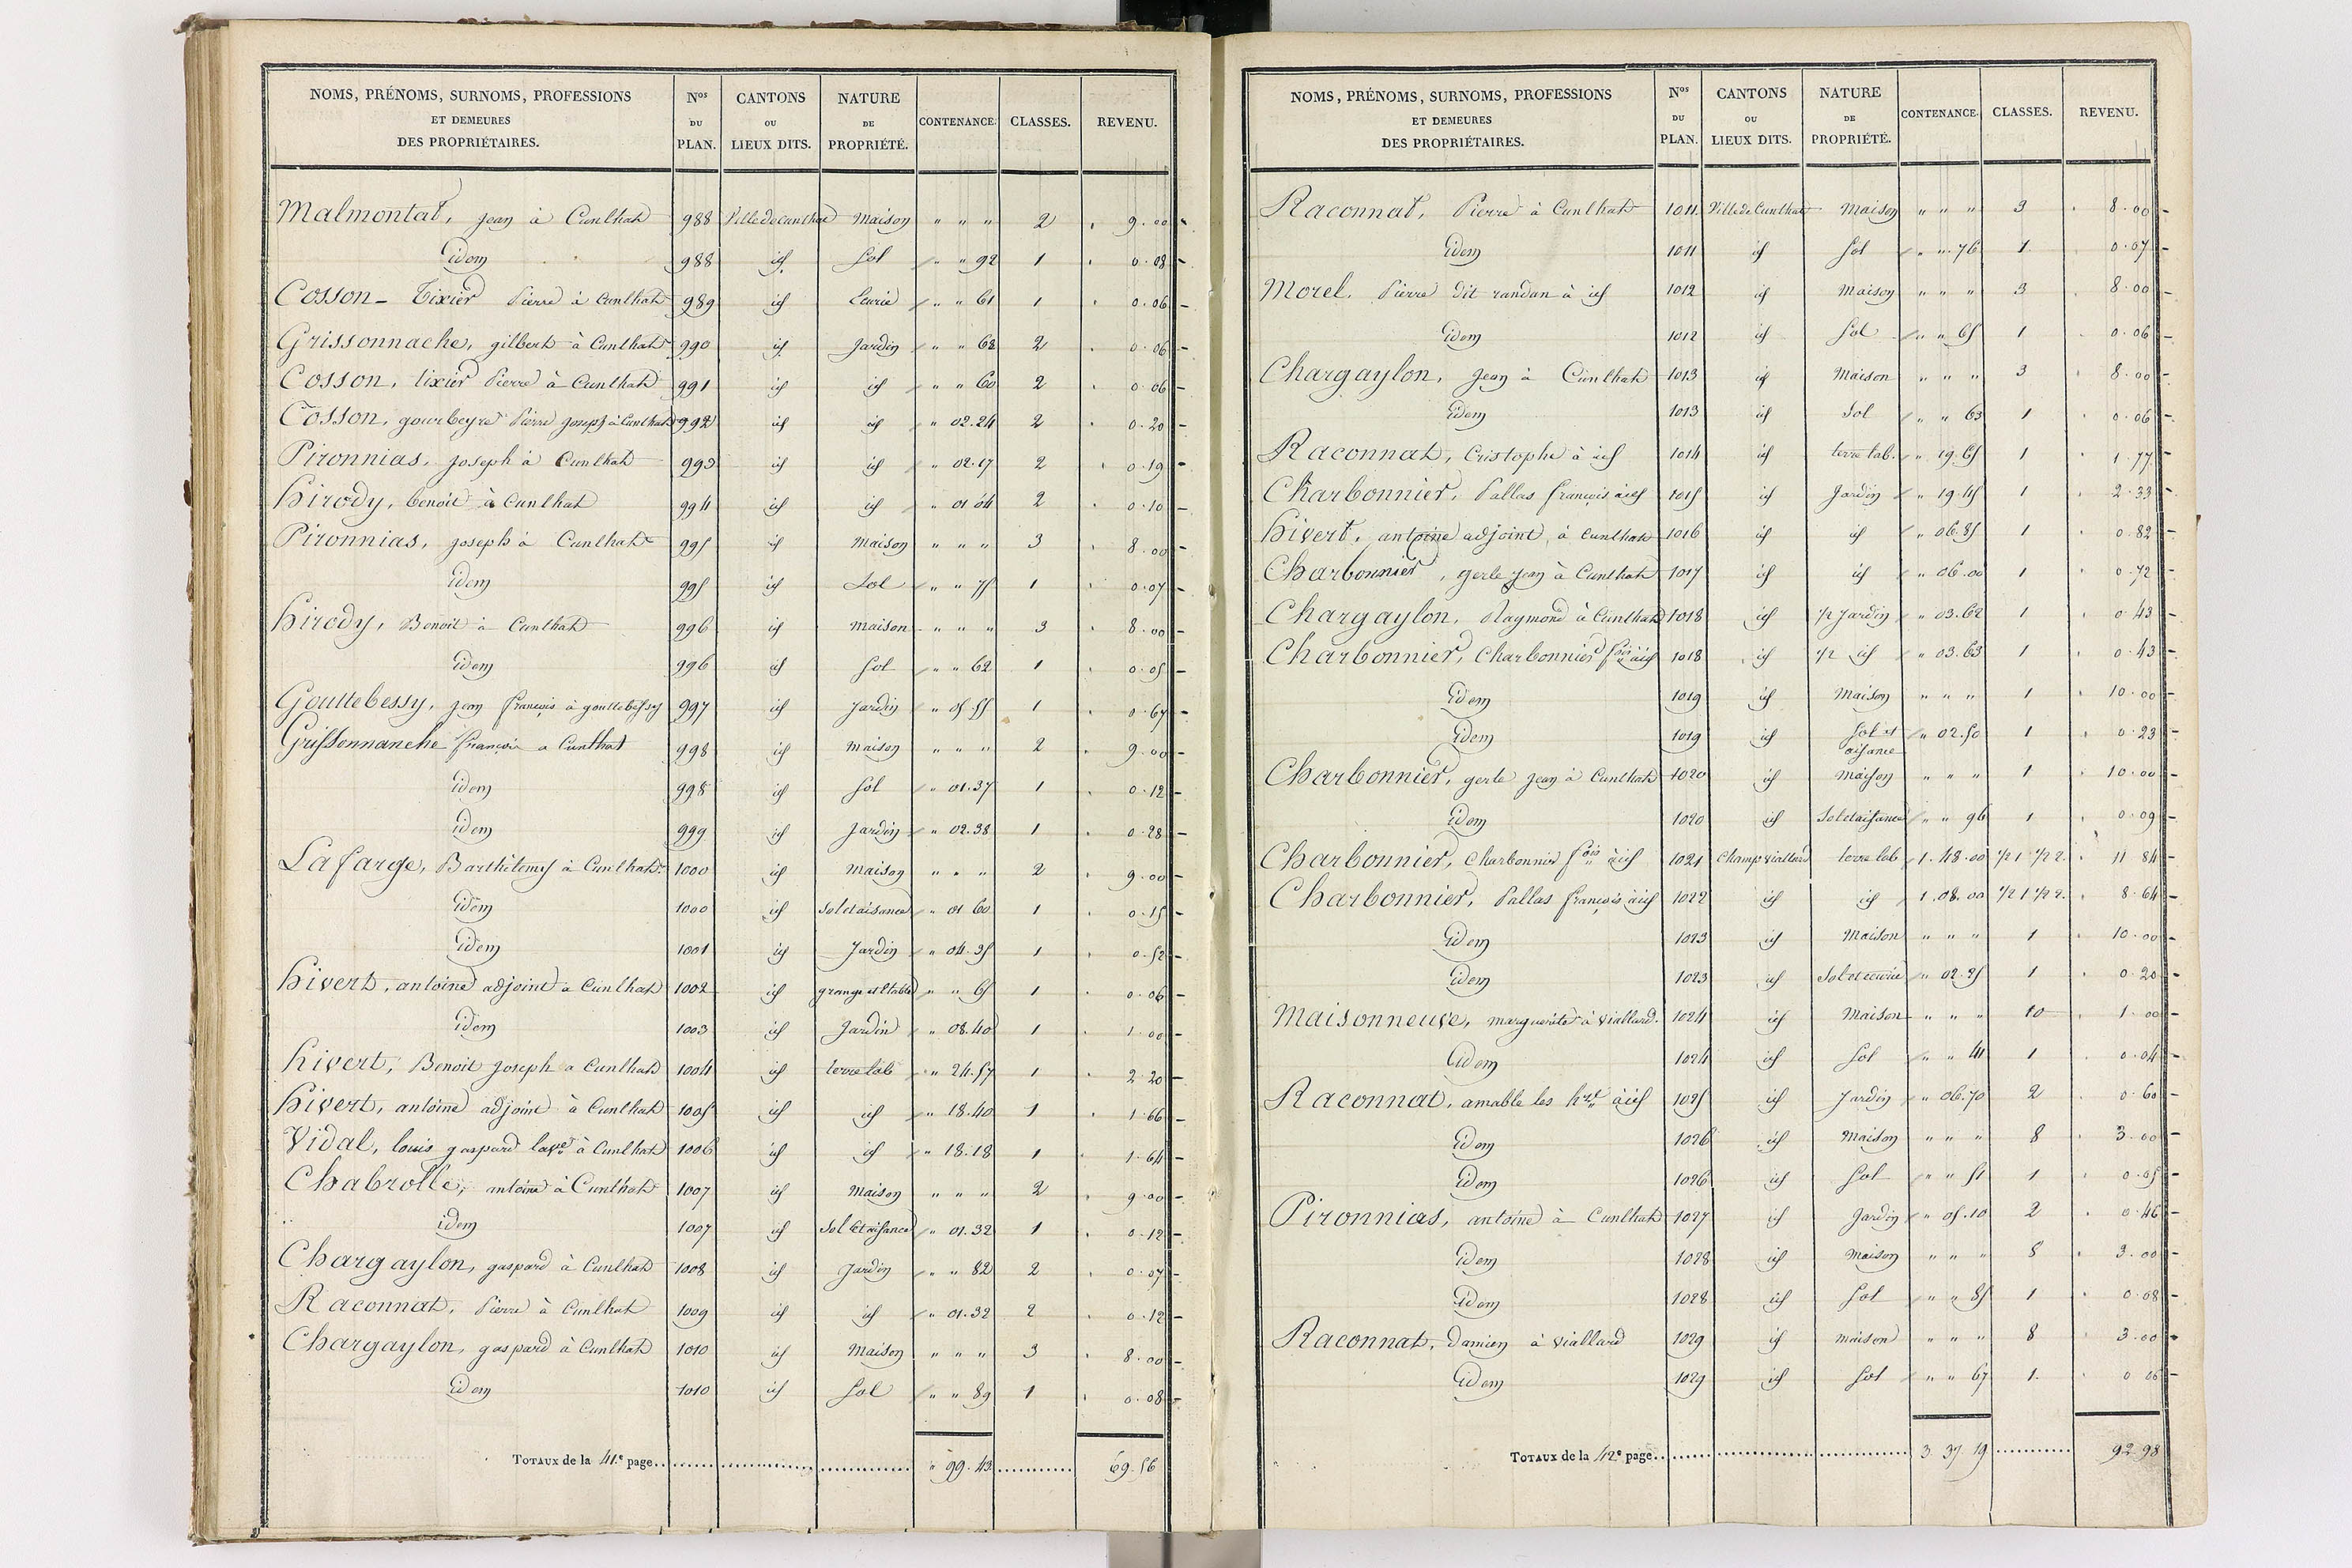 NOMS, PRÉNOMS, SURNOMS, PROFESSIONS ET DEMEURES DES PROPRIÉTAIRES. Nos DU PLAN. CANTONS OU LIEUX DITS. NATURE DE PROPRIÉTÉ. CONTENANCE. CLASSES. REVENU.
Malmontat, jean à Cunlhat 988 Ville de Cunlhat Maison " " " 2 9.00
idem 988 id Sol " " 92 1 0.08
Cosson - Tixier Pierre à Cunlhat 989 id Ecurie " " 61 1 0.06
Grissonnache, gilbert à Cunlhat 990 id Jardin " " 68 2 0.06
Cosson, tixier Pierre à Cunlhat 991 id id " " 60 2 0.06
Cosson, gourbeyre Pierre joseph à Cunlhat 992 id id " 02.24 2 0.20
Pironnias, joseph à Cunlhat 993 id id " 02.17 2 0.19
hirody, benoit à Cunlhat 994 id id " 01 04 2 0.10
Pironnias, joseph à Cunlhat 995 id Maison " " " 3 8.00
idem 995 id Sol " " 75 1 0.07
hirody, Benoit à Cunlhat 996 id Maison " " " 3 8.00
idem 996 id Sol " " 62 1 0.05
Gouttebessy, jean françois à gouttebessy 997 id Jardin " 05.55 1 0.67
Grissonnanche françois a Cunlhat 998 id Maison " " " 2 9.00
idem 998 id Sol " 01.37 1 0.12
idem 999 id Jardin " 02.38 1 0.28
Lafarge, Barthélemy à Cunlhat 1000 id Maison " " " 2 9.00
idem 1000 id Sol et aisance " 01 60 1 0.15
idem 1001 id Jardin " 04.35 1 0.52
hivert, antoine adjoint à Cunlhat 1002 id grange et Etable " " 65 1 0.06
idem 1003 id Jardin " 08.40 1 1.00
hivert, Benoit joseph a Cunlhat 1004 id terre lab " 24.57 1 2 20
hivert, antoine adjoint à Cunlhat 1005 id id " 18.40 1 1.66
Vidal, louis gaspard à Cunlhat 1006 id id " 18.18 1 1.64
Chabrolle, antoine à Cunlhat 1007 id Maison " " " 2 9.00
idem 1007 id Sol Et aisance " 01.32 1 0.12
Chargaylon, gaspard à Cunlhat 1008 id Jardin " " 82 2 0.07
Raconnat, Pierre à Cunlhat 1009 id id " 01.32 2 0.12
Chargaylon, gaspard à Cunlhat 1010 id Maison " " " 3 8.00
idem 1010 id Sol " " 89 1 0.08
TOTAUX de la 41e page " 99.43 69.56
NOMS, PRÉNOMS, SURNOMS, PROFESSIONS ET DEMEURES DES PROPRIÉTAIRES. Nos DU PLAN. CANTONS OU LIEUX DITS. NATURE DE PROPRIÉTÉ. CONTENANCE. CLASSES. REVENU.
Raconnat, Pierre à Cunlhat 1011 Ville de Cunlhat Maison " " " 3 8.00
idem 1011 id Sol " " 76 1 0.07
Morel, Pierre dit randan à id 1012 id Maison " " " 3 8.00
idem 1012 id Sol " " 65 1 0.06
Chargaylon, Jean à Cunlhat 1013 id Maison " " " 3 8.00
idem 1013 id Sol " " 63 1 0.06
Raconnat, Cristophe à id 1014 id terre lab. " 19.65 1 1.77
Charbonnier, Pallas françois à id 1015 id Jardin " 19.45 1 2.33
hivert, antoine adjoint à Cunlhat 1016 id id " 06.85 1 0.82
Charbonnier, gerle jean à Cunlhat 1017 id id " 06.00 1 0.72
Chargaylon, Raymond à Cunlhat 1018 id 1/2 Jardin " 03.62 1 0.43
Charbonnier, Charbonnier fois à id 1018 id 1/2 id " 03.63 1 0.43
idem 1019 id Maison " " " 1 10.00
idem 1019 id Sol et aisance " 02.50 1 0.23
Charbonnier, gerle jean à Cunlhat 1020 id Maison " " " 1 10.00
idem 1020 id Sol et aisance " " 96 1 0.09
Charbonnier, Charbonnier fois à id 1021 Champ viallard terre lab 1.48.00 1/2 1 1/2 2. 11 84
Charbonnier, Pallas françois à id 1022 id id 1.08.00 1/2 1 1/2 2. 8.64
idem 1023 id Maison " " " 1 10.00
idem 1023 id Sol et ecurie " 02.25 1 0.20
Maisonneuve, marguerite à Viallard. 1024 id Maison " " " 10 1.00
idem 1024 id Sol " " 41 1 0.04
Raconnat, amable les hers à id 1025 id Jardin " 06.70 2 0.60
idem 1026 id Maison " " " 8 3.00
idem 1026 id Sol " " 51 1 0.05
Pironnias, antoine à Cunlhat 1027 id Jardin " 05.10 2 0.46
idem 1028 id Maison " " " 8 3.00
idem 1028 id Sol " " 85 1 0.08
Raconnat, Damien à Viallard 1029 id maison " " " 8 3.00
idem 1029 id Sol " " 67 1. 0 06
TOTAUX de la 42e page 3 37 19 92.98